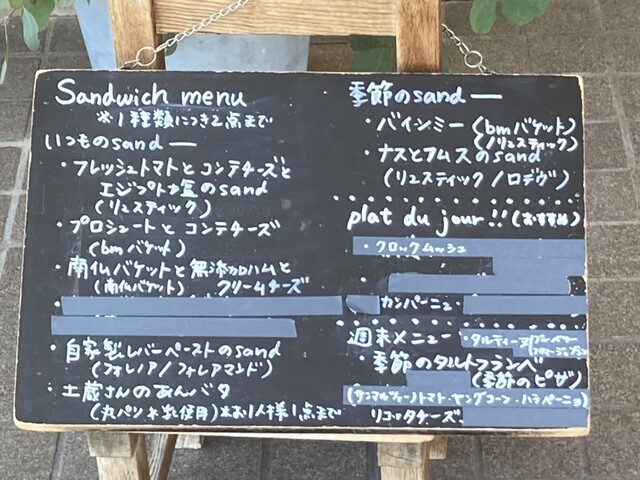 Sandwich menu
※1種類につき2点まで
いつものsand
・フレッシュトマトとコンテチーズと
エジプト塩のsand
(リュスティック)
・プロシュートとコンテチーズ
(bmバケット)
・南仏バケットと無添加ハムと
(南仏バケット) クリームチーズ
・自家製レバーペーストのsand
(フォレノア/フォレアマンド)
・土蔵さんのあんバタ
(丸パン※乳使用)※お1人様1点まで
季節のsand
・バインミー(bmバケット)
(/リュスティック)
・ナスとフムスのsand
(リュスティック/ロデヴ)
plat du jour!!(おすすめ)
・クロックムッシュ
カンパーニュ
週末メニュー ・タルティーヌ
・季節のタルトフランベ
(季節のピザ)
(サンマルツァーノトマト・ヤングコーン・ハラペーニョ)
リコッタチーズ